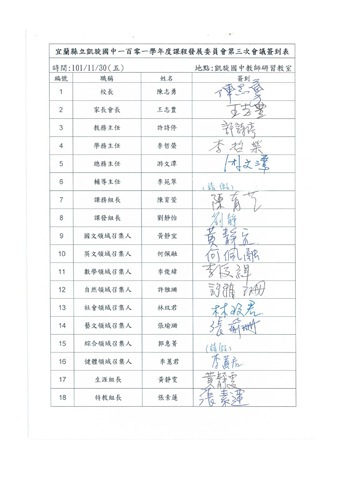 宜蘭縣立凱旋國中一百零一學年度課程發展委員會第三次會議簽到表
時間:101/11/30(五) 地點:凱旋國中教師研習教室
編號 職稱 姓名 簽到
1 校長 陳志勇 陳志勇
2 家長會長 王志豐 王志豐
3 教務主任 許詩停 許詩停
4 學務主任 李哲榮 李哲榮
5 總務主任 游文濱 游文濱
6 輔導主任 李苑箏 (請假)
7 課務組長 陳育萱 陳育萱
8 課發組長 劉靜怡 劉靜
9 國文領域召集人 黃靜宜 黃靜宜
10 英文領域召集人 何佩融 何佩融
11 數學領域召集人 李俊緯 李俊緯
12 自然領域召集人 許雅珊 許雅珊
13 社會領域召集人 林玫君 林玫君
14 藝文領域召集人 張瑜珊 張
15 綜合領域召集人 郭惠菁 (請假)
16 健體領域召集人 李蕙君 李蕙君
17 生涯組長 黃靜雯 黃靜雯
18 特教組長 張素蓮 張素蓮